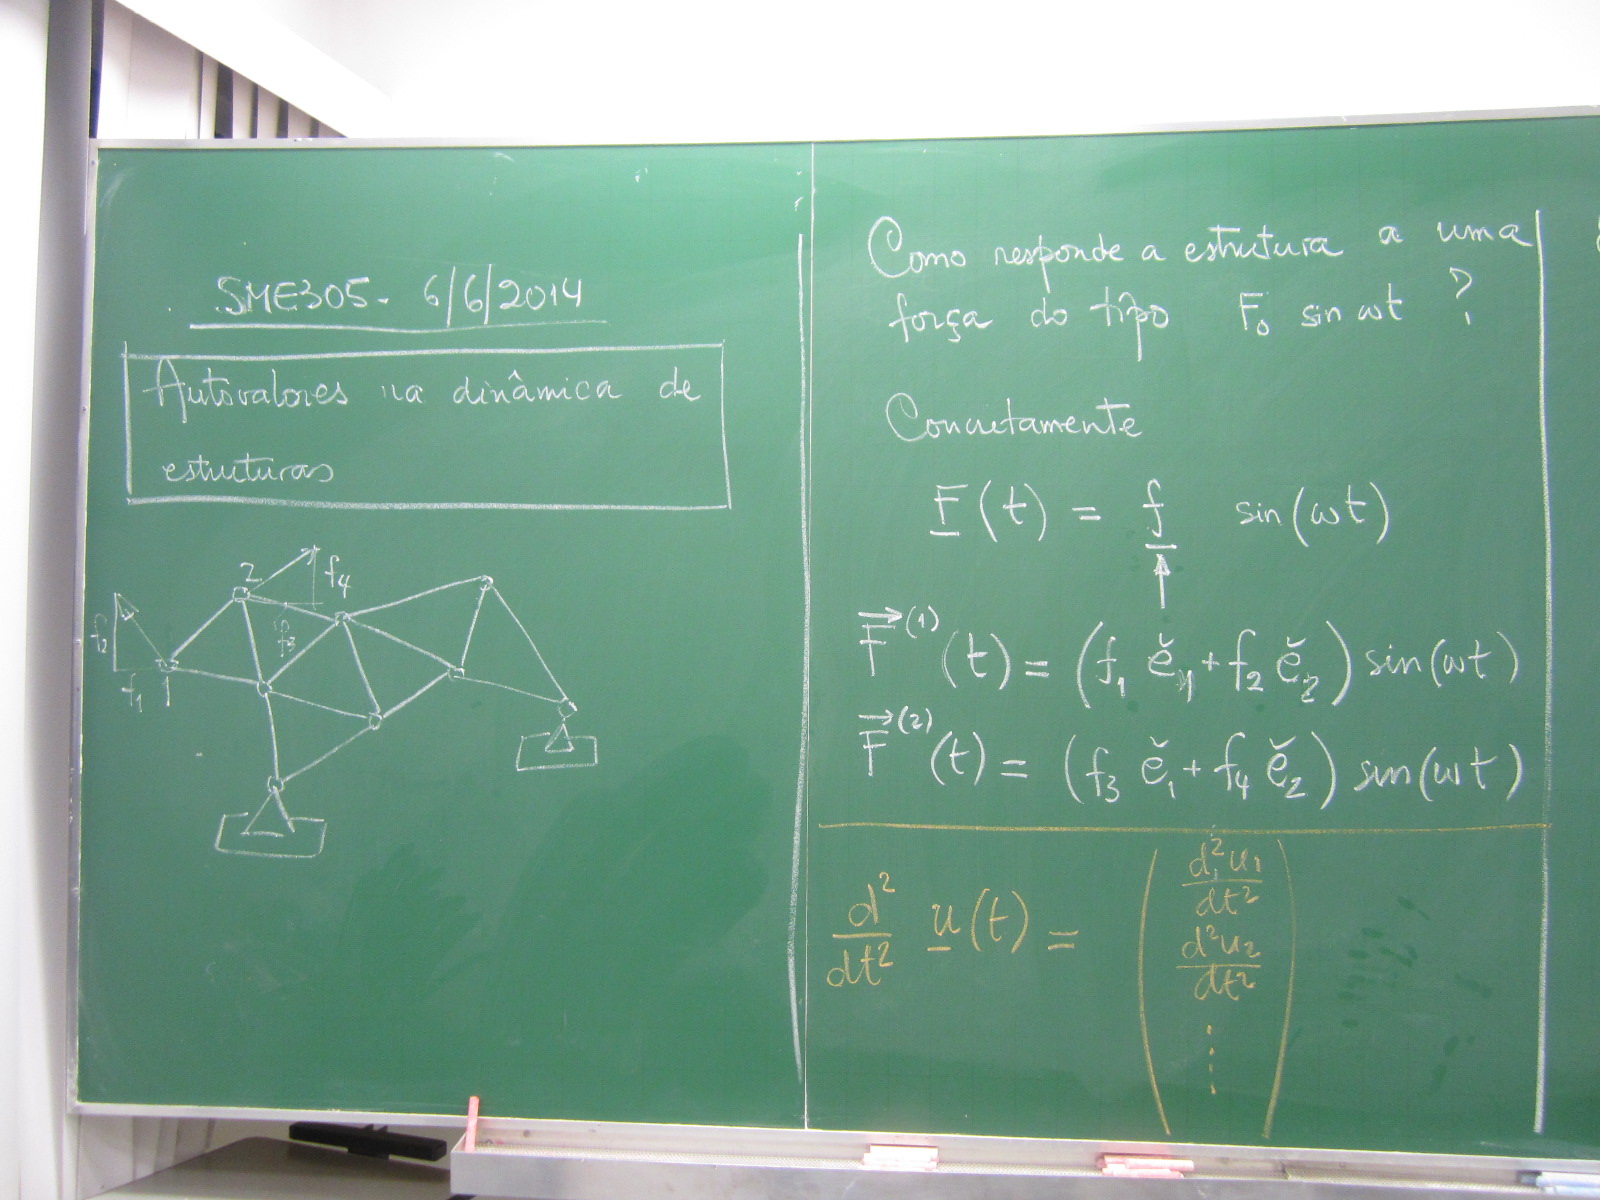 SME305 - 6/6/2014
Autovalores na dinâmica de
estruturas
2
f4
f2
f3
f1 1
Como responde a estrutura a uma
força do tipo F₀ sin ωt ?
Concretamente
F(t) = f sin(ωt)
F⃗⁽¹⁾(t) = (f₁ ě₁ + f₂ ě₂) sin(ωt)
F⃗⁽²⁾(t) = (f₃ ě₁ + f₄ ě₂) sin(ωt)
d²/dt² u(t) = ( d²u₁/dt²
d²u₂/dt²
⋮ )